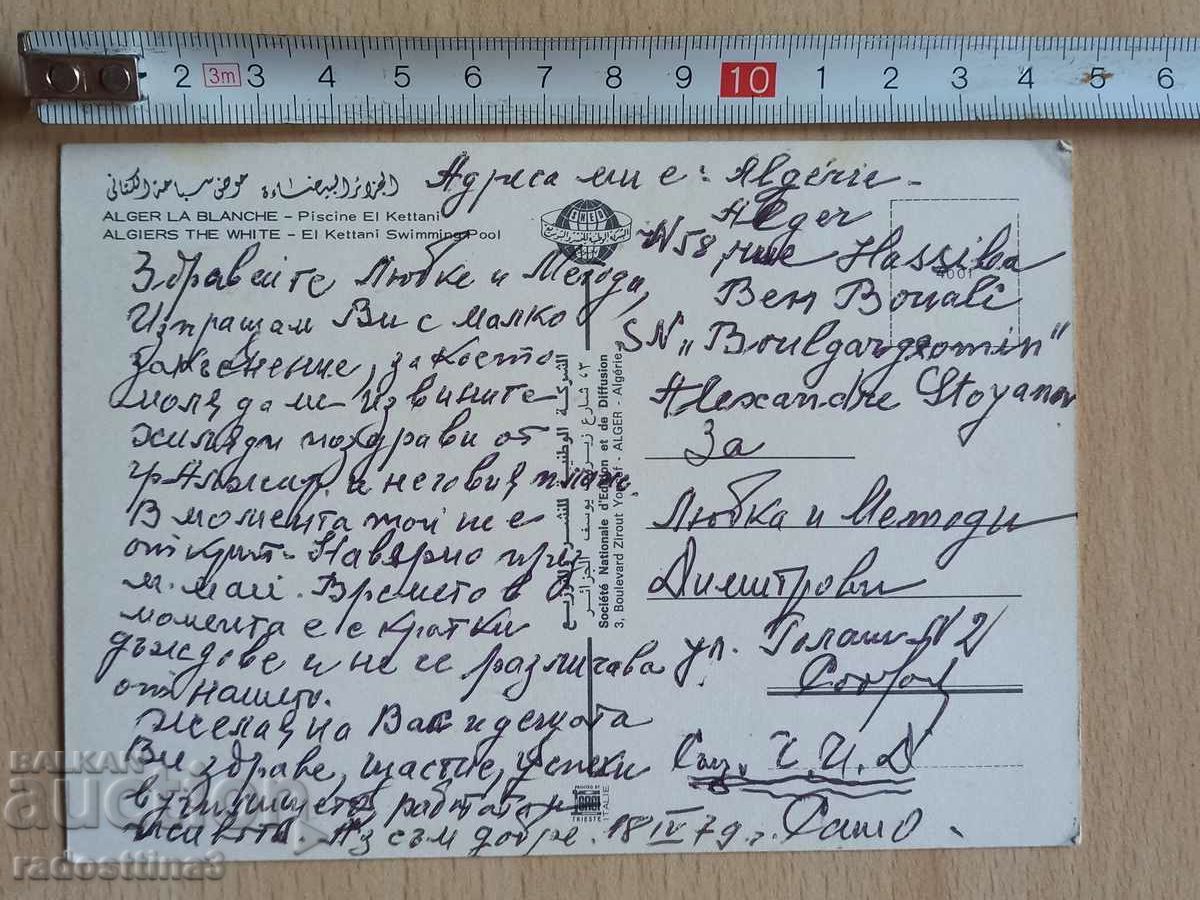 2 3m 3 4 5 6 7 8 9 10 1 2 3 4 5 6
الجزائر البيضاء حوض سباحة الكتاني
ALGER LA BLANCHE – Piscine El Kettani
ALGIERS THE WHITE – El Kettani Swimming Pool
SNED
Здравейте Любке и Методи,
Изпращам Ви с малко
закъснение, за което
моля да ме извините
хиляди поздрави от
гр. Алжир и неговия плаж.
В момента той не е
открит. Наверно през
м. май. Времето в
момента е с кратки
дъждове и не се различава
от нашето.
Желая на Вас и децата
Ви здраве, щастие, успехи
в училището, работата
Аз съм добре. 18 IV 79 г. Сашо.
الشركة الوطنية للنشر والتوزيع
٣، شارع زيروت يوسف الجزائر
Société Nationale d'Edition et de Diffusion
3, Boulevard Zirout Yousef - ALGER - Algérie
PRINTED BY
TRIESTE
ITALIE
Адреса ми е: Algérie –
Alger
N 58, рue Hassiba
Ben Bouali
SN „Boulgargeomin"
Alexandre Stoyanov
4001
За
Любка и Методи
Димитрови
ул. N 2
София
BALKAN
auction
radosttina3